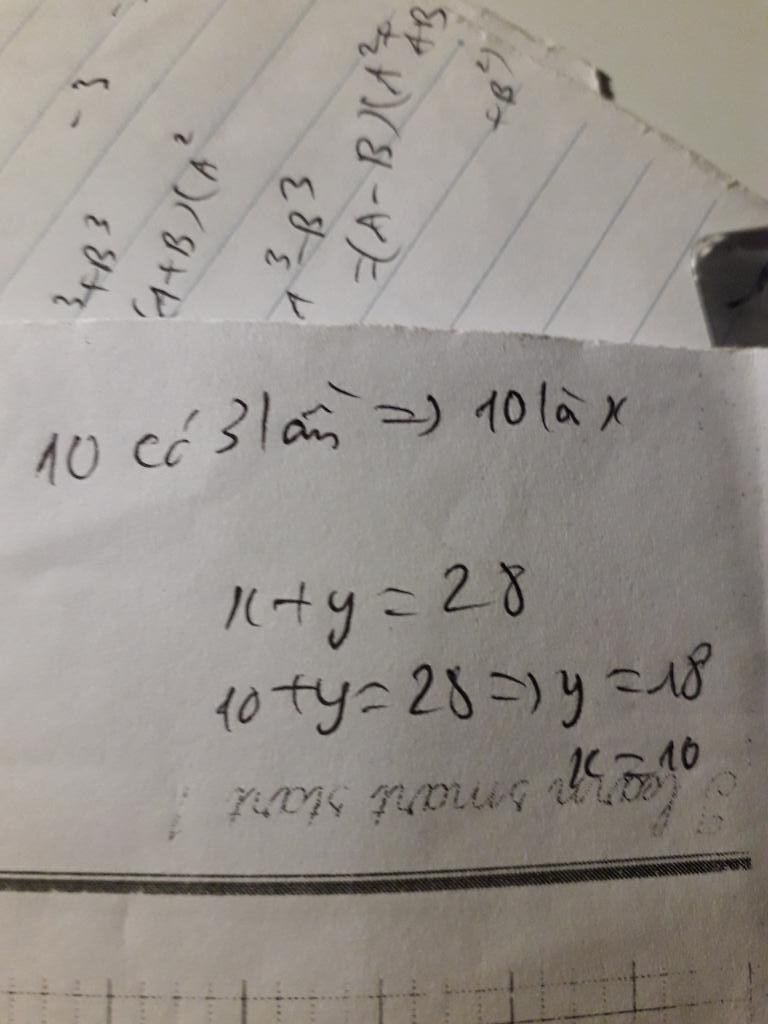 - 3
³+B³
(A+B)(A²
A³-B³
=(A-B)(A²+AB
+B²)
10 có 3 lần => 10 là x
x+y=28
10+y=28=>y=18
x=10
learn smart start